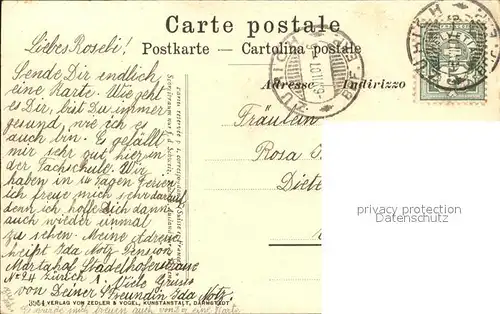 Carte postale
Postkarte - Cartolina postale
Adresse Indirizzo
Liebes Rosebi!
Sende Dir endlich
eine Karte. Wie geht
es Dir, bist Du immer
gesund, wie ich es
auch bin. Es gefällt
mir sehr gut hier in
der Fachschule. Wir
haben in 14 Tagen Ferien
ich freue mich sehr darauf
denn ich hoffe Dich dann
auch wieder einmal
zu sehen. Meine Adresse
heißt Ida Notz Pension
Martahof Stadelhoferstrasse
No 24 Zürich 1. Viele Grüsse
von Deiner Freundin Ida Notz.
Es würde mich freuen auch von Dir eine Karte
Fräulein
Rosa
Diete
ZÜRICH
BRF. EXP.
privacy protection
Datenschutz
3964 VERLAG VON ZEDLER & VOGEL, KUNSTANSTALT, DARMSTADT.